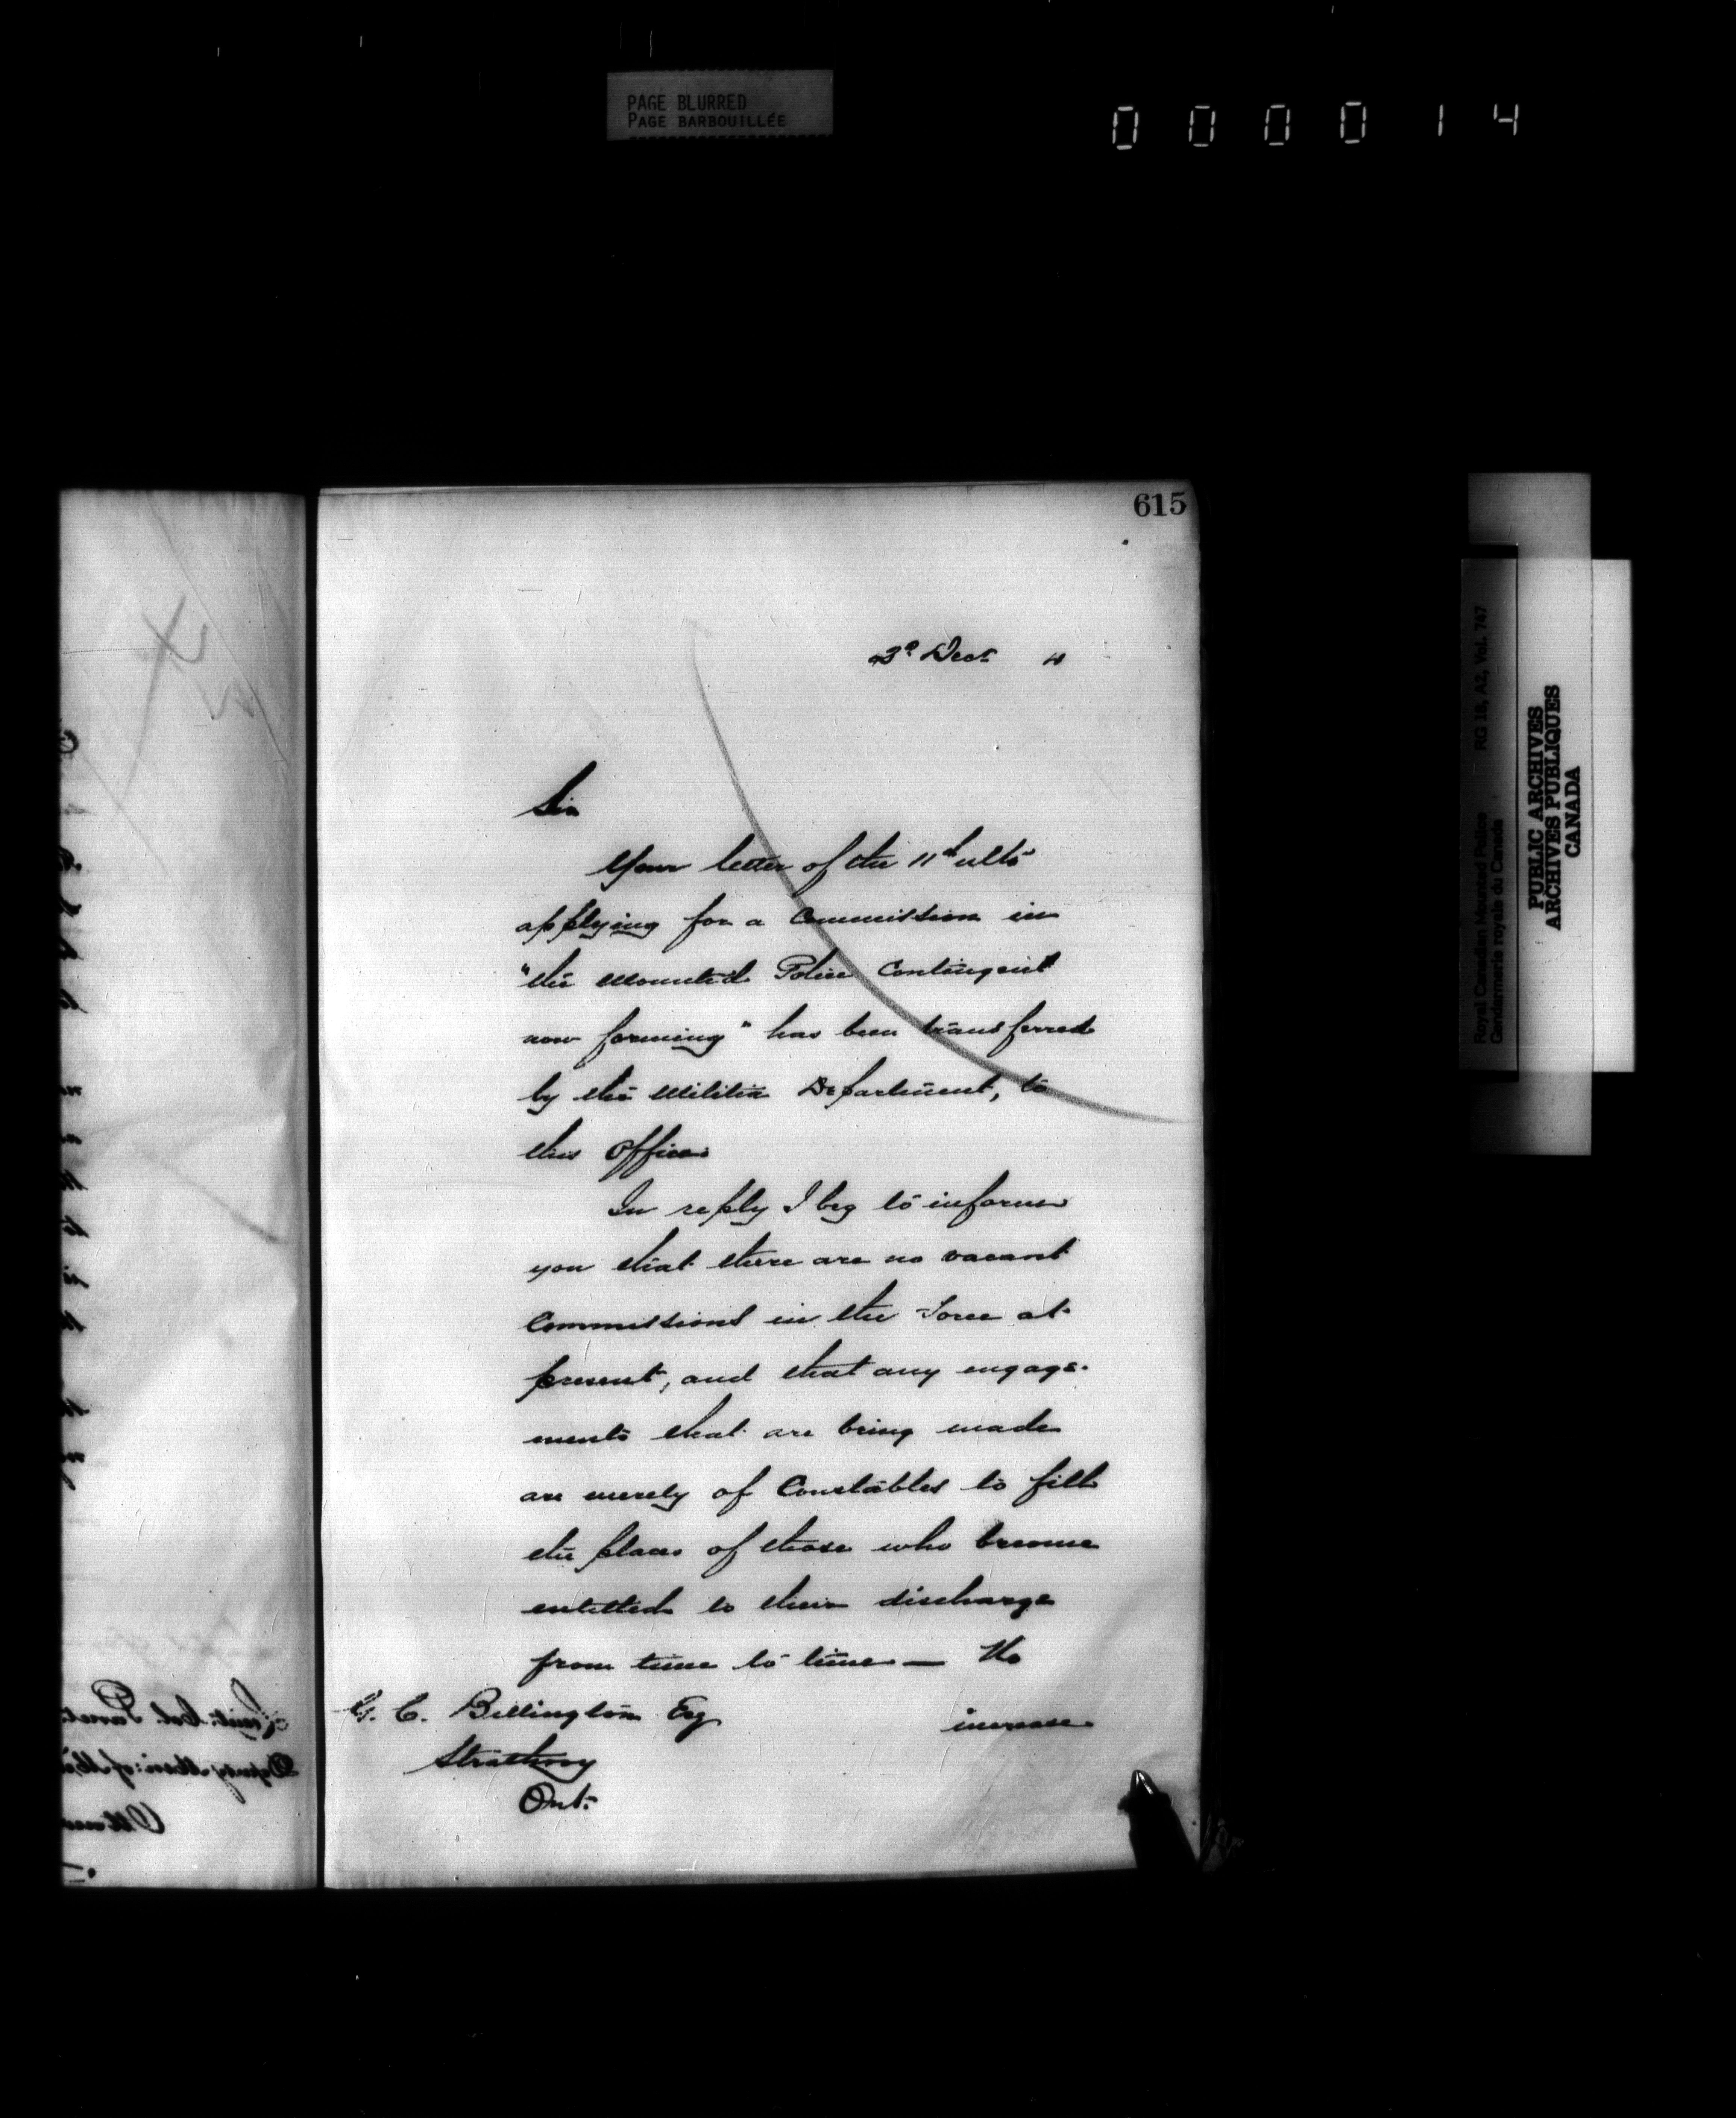 PAGE BLURRED
PAGE BARBOUILLÉE
0 0 0 0 1 4
615
3d Dect 4
Sir
Your letter of the 11th ulto
applying for a Commission in
"the Mounted Police Contingent
now forming" has been transferred
by the Militia Department, to
this Office.
In reply I beg to inform
you that there are no vacant
Commissions in the Force at
present, and that any engage-
ments that are being made
are merely of Constables to fill
the places of those who become
entitled to their discharge
from time to time — The
increase
G. C. Billington Esq
Strathroy
Ont.
Royal Canadian Mounted Police RG 18, A2, Vol. 747
Gendarmerie royale du Canada
PUBLIC ARCHIVES
ARCHIVES PUBLIQUES
CANADA